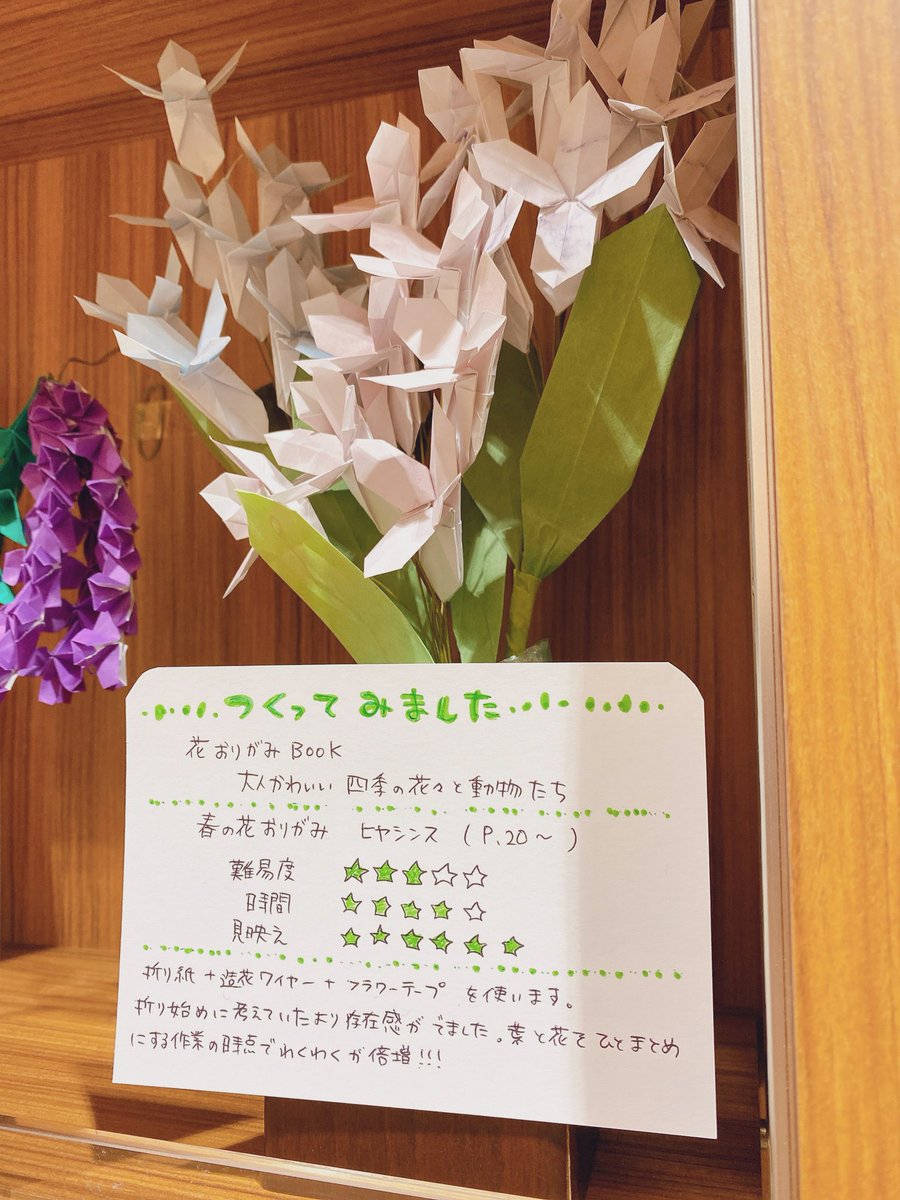 つくってみました
花おりがみBOOK
大人かわいい 四季の花々と動物たち
春の花おりがみ ヒヤシンス (P.20〜 )
難易度 ★★★☆☆
時間 ★★★★☆
見映え ★★★★★★
折り紙+造花ワイヤー+フラワーテープ を使います。
折り始めに考えていたより存在感がでました。葉と花をひとまとめ
にする作業の時点でわくわくが倍増!!!